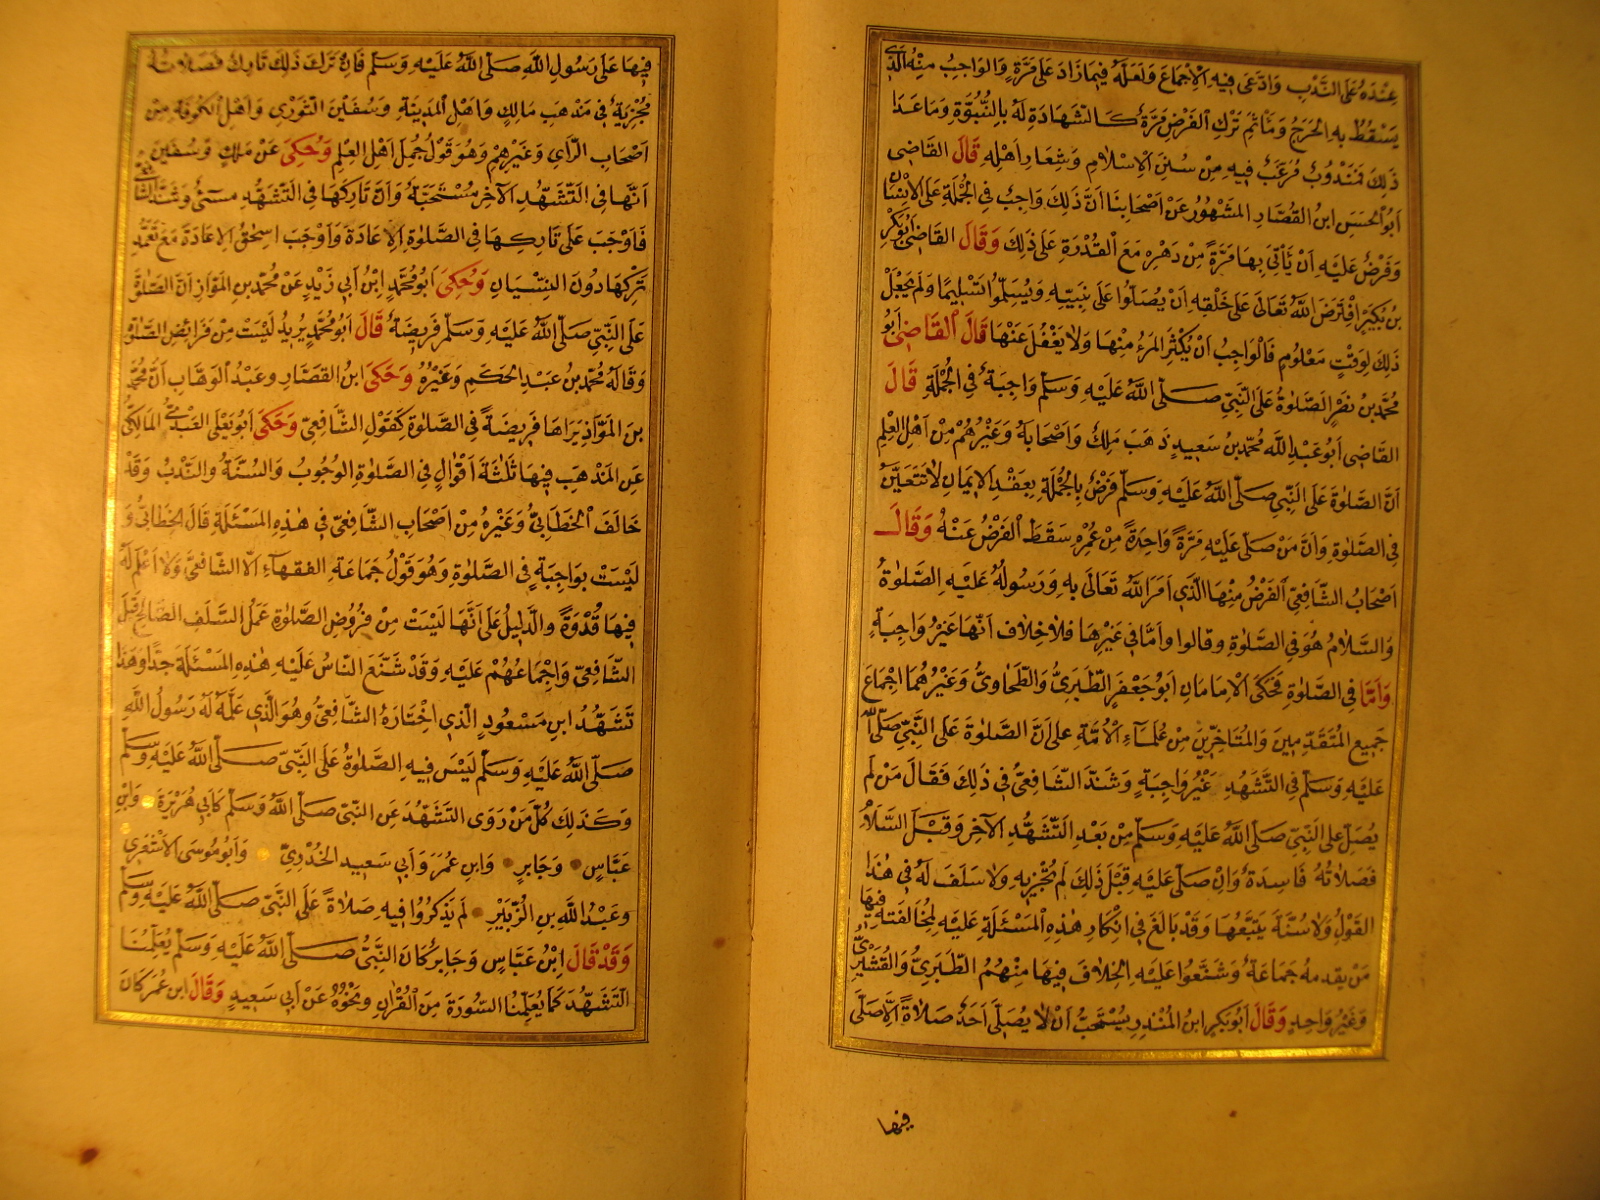 عِنْدَهُ عَلَى النَّدْبِ وَادَّعَى فِيهِ الْاِجْمَاعَ وَلَعَلَّهُ فِيمَا زَادَ عَلَى مَرَّةٍ وَالْوَاجِبُ مِنْهُ الَّذِي
يَسْقُطُ بِهِ الْحَرَجُ وَمَاْثَمُ تَرْكِ الْفَرْضِ مَرَّةً كَالشَّهَادَةِ لَهُ بِالنُّبُوَّةِ وَمَا عَدَا
ذٰلِكَ فَمَنْدُوبٌ مُرَغَّبٌ فِيهِ مِنْ سُنَنِ الْاِسْلَامِ وَشِعَارِ اَهْلِهِ قَالَ الْقَاضِي
اَبُو الْحَسَنِ ابْنُ الْقَصَّارِ الْمَشْهُورُ عَنْ اَصْحَابِنَا اَنَّ ذٰلِكَ وَاجِبٌ فِي الْجُمْلَةِ عَلَى الْاِنْسَانِ
وَفَرْضٌ عَلَيْهِ اَنْ يَأْتِيَ بِهَا مَرَّةً مِنْ دَهْرِهِ مَعَ الْقُدْرَةِ عَلَى ذٰلِكَ وَقَالَ الْقَاضِي اَبُو بَكْرِ
بْنُ بُكَيْرٍ افْتَرَضَ اللّٰهُ تَعَالَى عَلَى خَلْقِهِ اَنْ يُصَلُّوا عَلَى نَبِيِّهِ وَيُسَلِّمُوا تَسْلِيمًا وَلَمْ يَجْعَلْ
ذٰلِكَ لِوَقْتٍ مَعْلُومٍ فَالْوَاجِبُ اَنْ يُكْثِرَ الْمَرْءُ مِنْهَا وَلَا يَغْفُلَ عَنْهَا قَالَ الْقَاضِي اَبُو
مُحَمَّدِ بْنُ نَصْرٍ الصَّلٰوةُ عَلَى النَّبِيِّ صَلَّى اللّٰهُ عَلَيْهِ وَسَلَّمَ وَاجِبَةٌ فِي الْجُمْلَةِ قَالَ
الْقَاضِي اَبُو عَبْدِ اللّٰهِ مُحَمَّدُ بْنُ سَعِيدٍ ذَهَبَ مٰلِكٌ وَاَصْحَابُهُ وَغَيْرُهُمْ مِنْ اَهْلِ الْعِلْمِ
اَنَّ الصَّلٰوةَ عَلَى النَّبِيِّ صَلَّى اللّٰهُ عَلَيْهِ وَسَلَّمَ فَرْضٌ بِالْجُمْلَةِ بِعَقْدِ الْاِيمَانِ لَا تَتَعَيَّنُ
فِي الصَّلٰوةِ وَاَنَّ مَنْ صَلَّى عَلَيْهِ مَرَّةً وَاحِدَةً مِنْ عُمْرِهِ سَقَطَ الْفَرْضُ عَنْهُ وَقَالَ
اَصْحَابُ الشَّافِعِيِّ الْفَرْضُ مِنْهَا الَّذِي اَمَرَ اللّٰهُ تَعَالَى بِهِ وَرَسُولُهُ عَلَيْهِ الصَّلٰوةُ
وَالسَّلَامُ هُوَ فِي الصَّلٰوةِ وَقَالُوا وَاَمَّا فِي غَيْرِهَا فَلَا خِلَافَ اَنَّهَا غَيْرُ وَاجِبَةٍ
وَاَمَّا فِي الصَّلٰوةِ فَحَكَى الْاِمَامَانِ اَبُو جَعْفَرٍ الطَّبَرِيُّ وَالطَّحَاوِيُّ وَغَيْرُهُمَا اِجْمَاعَ
جَمِيعِ الْمُتَقَدِّمِينَ وَالْمُتَاَخِّرِينَ مِنْ عُلَمَاءِ الْاُمَّةِ عَلَى اَنَّ الصَّلٰوةَ عَلَى النَّبِيِّ صَلَّى اللّٰهُ
عَلَيْهِ وَسَلَّمَ فِي التَّشَهُّدِ غَيْرُ وَاجِبَةٍ وَشَذَّ الشَّافِعِيُّ فِي ذٰلِكَ فَقَالَ مَنْ لَمْ
يُصَلِّ عَلَى النَّبِيِّ صَلَّى اللّٰهُ عَلَيْهِ وَسَلَّمَ مِنْ بَعْدِ التَّشَهُّدِ الْاٰخِرِ وَقَبْلَ السَّلَامِ
فَصَلَاتُهُ فَاسِدَةٌ وَاِنْ صَلَّى عَلَيْهِ قَبْلَ ذٰلِكَ لَمْ تُجْزِيهِ وَلَا سَلَفَ لَهُ فِي هٰذَا
الْقَوْلِ وَلَا سُنَّةَ يَتَّبِعُهَا وَقَدْ بَالَغَ فِي اِنْكَارِ هٰذِهِ الْمَسْئَلَةِ عَلَيْهِ لِمُخَالَفَتِهِ فِيهَا
مَنْ يَقْدُمُهُ جَمَاعَةٌ وَشَنَّعُوا عَلَيْهِ الْخِلَافَ فِيهَا مِنْهُمُ الطَّبَرِيُّ وَالْقُشَيْرِيُّ
وَغَيْرُ وَاحِدٍ وَقَالَ اَبُو بَكْرِ ابْنُ الْمُنْذِرِ يُسْتَحَبُّ اَنْ لَا يُصَلِّيَ اَحَدٌ صَلَاةً اِلَّا صَلَّى
فيها
فِيهَا عَلَى رَسُولِ اللّٰهِ صَلَّى اللّٰهُ عَلَيْهِ وَسَلَّمَ فَاِنْ تَرَكَ ذٰلِكَ تَارِكٌ فَصَلَاتُهُ
مُجْزِيَةٌ فِي مَذْهَبِ مَالِكٍ وَاَهْلِ الْمَدِينَةِ وَسُفْيٰنَ الثَّوْرِي وَاَهْلِ الْكُوفَةِ مِنْ
اَصْحَابِ الرَّأْيِ وَغَيْرِهِمْ وَهُوَ قَوْلُ جُمَلِ اَهْلِ الْعِلْمِ وَحُكِيَ عَنْ مٰلِكٍ وَسُفْيٰنَ
اَنَّهَا فِي التَّشَهُّدِ الْاٰخِرِ مُسْتَحَبَّةٌ وَاَنَّ تَارِكَهَا فِي التَّشَهُّدِ مُسِئٌ وَشَذَّ الشَّافِعِيُّ
فَاَوْجَبَ عَلَى تَارِكِهَا فِي الصَّلٰوةِ الْاِعَادَةَ وَاَوْجَبَ اِسْحٰقُ الْاِعَادَةَ مَعَ تَعَمُّدِ
تَرْكِهَا دُونَ النِّسْيَانِ وَحُكِيَ اَبُو مُحَمَّدٍ ابْنُ اَبِي زَيْدٍ عَنْ مُحَمَّدِ بْنِ الْمَوَّازِ اَنَّ الصَّلٰوةَ
عَلَى النَّبِيِّ صَلَّى اللّٰهُ عَلَيْهِ وَسَلَّمَ فَرِيضَةٌ قَالَ اَبُو مُحَمَّدٍ يُرِيدُ لَيْسَتْ مِنْ فَرَائِضِ الصَّلٰوةِ
وَقَالَهُ مُحَمَّدُ بْنُ عَبْدِ الْحَكَمِ وَغَيْرُهُ وَحَكَى ابْنُ الْقَصَّارِ وَعَبْدُ الْوَهَّابِ اَنَّ مُحَمَّدَ
بْنَ الْمَوَّازِ يَرَاهَا فَرِيضَةً فِي الصَّلٰوةِ كَقَوْلِ الشَّافِعِيِّ وَحَكَى اَبُو يَعْلَى الْعَبْدِيُّ الْمَالِكِيُّ
عَنِ الْمَذْهَبِ فِيهَا ثَلٰثَةَ اَقْوَالٍ فِي الصَّلٰوةِ الْوُجُوبُ وَالسُّنَّةُ وَالنَّدْبُ وَقَدْ
خَالَفَ الْخَطَّابِيُّ وَغَيْرُهُ مِنْ اَصْحَابِ الشَّافِعِيِّ فِي هٰذِهِ الْمَسْئَلَةِ قَالَ الْخَطَّابِيُّ وَ
لَيْسَتْ بِوَاجِبَةٍ فِي الصَّلٰوةِ وَهُوَ قَوْلُ جَمَاعَةِ الْفُقَهَاءِ اِلَّا الشَّافِعِيَّ وَلَا اَعْلَمُ لَهُ
فِيهَا قُدْوَةً وَالدَّلِيلُ عَلَى اَنَّهَا لَيْسَتْ مِنْ فُرُوضِ الصَّلٰوةِ عَمَلُ السَّلَفِ الصَّالِحِ قَبْلَ
الشَّافِعِيِّ وَاِجْمَاعُهُمْ عَلَيْهِ وَقَدْ شَنَّعَ النَّاسُ عَلَيْهِ هٰذِهِ الْمَسْئَلَةَ جِدًّا وَهٰذَا
تَشَهُّدُ ابْنِ مَسْعُودٍ الَّذِي اخْتَارَهُ الشَّافِعِيُّ وَهُوَ الَّذِي عَلَّمَهُ لَهُ رَسُولُ اللّٰهِ
صَلَّى اللّٰهُ عَلَيْهِ وَسَلَّمَ لَيْسَ فِيهِ الصَّلٰوةُ عَلَى النَّبِيِّ صَلَّى اللّٰهُ عَلَيْهِ وَسَلَّمَ
وَكَذٰلِكَ كُلُّ مَنْ رَوَى التَّشَهُّدَ عَنِ النَّبِيِّ صَلَّى اللّٰهُ وَسَلَّمَ كَاَبِي هُرَيْرَةَ وَابْنِ
عَبَّاسٍ وَجَابِرٍ وَابْنِ عُمَرَ وَاَبِي سَعِيدٍ الْخُدْرِيِّ وَاَبُو مُوسَى الْاَشْعَرِي
وَعَبْدُ اللّٰهِ بْنِ الزُّبَيْرِ لَمْ يَذْكُرُوا فِيهِ صَلَاةً عَلَى النَّبِيِّ صَلَّى اللّٰهُ عَلَيْهِ وَسَلَّمَ
وَقَدْ قَالَ ابْنُ عَبَّاسٍ وَجَابِرٌ كَانَ النَّبِيُّ صَلَّى اللّٰهُ عَلَيْهِ وَسَلَّمَ يُعَلِّمُنَا
التَّشَهُّدَ كَمَا يُعَلِّمُنَا السُّورَةَ مِنَ الْقُرْاٰنِ وَنَحْوُهُ عَنْ اَبِي سَعِيدٍ وَقَالَ ابْنُ عُمَرَ كَانَ